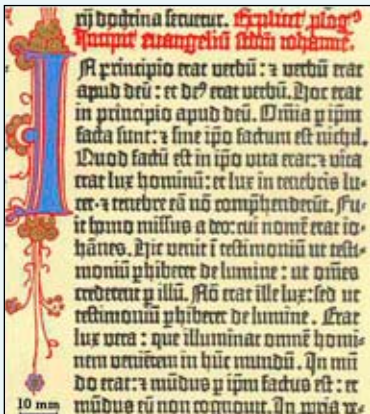 rij doctrina secuntur. Explicit plogꝰ
Incipit euangeliū scdm iohannē.
IN principio erat verbū: ⁊ verbū erat
apud deū: et deꝰ erat verbū. Hoc erat
in principio apud deū. Om̄ia ꝑ ipm̄
facta sunt: ⁊ sine ipo factum est nichil.
Quod factū est in ipo vita erat: ⁊ vita
erat lux hominū: et lux in tenebris lu-
cet. ⁊ tenebre eā nō comphenderūt. Fu-
it homo missus a deo: cui nomē erat io-
hānes. Hic venit ī testimoniū ut testi-
moniū ꝑhiberet de lumine: ut om̄es
crederent ꝑ illū. Nō erat ille lux: sed ut
testimoniū ꝑhiberet de lumine. Erat
lux vera: que illuminat omnē homi-
nem venientem in hūc mundū. In mū
do erat: ⁊ mūdus ꝑ ipm̄ factus est: et
mūdus eū non cognouit. In ꝓpria ve-
10 mm